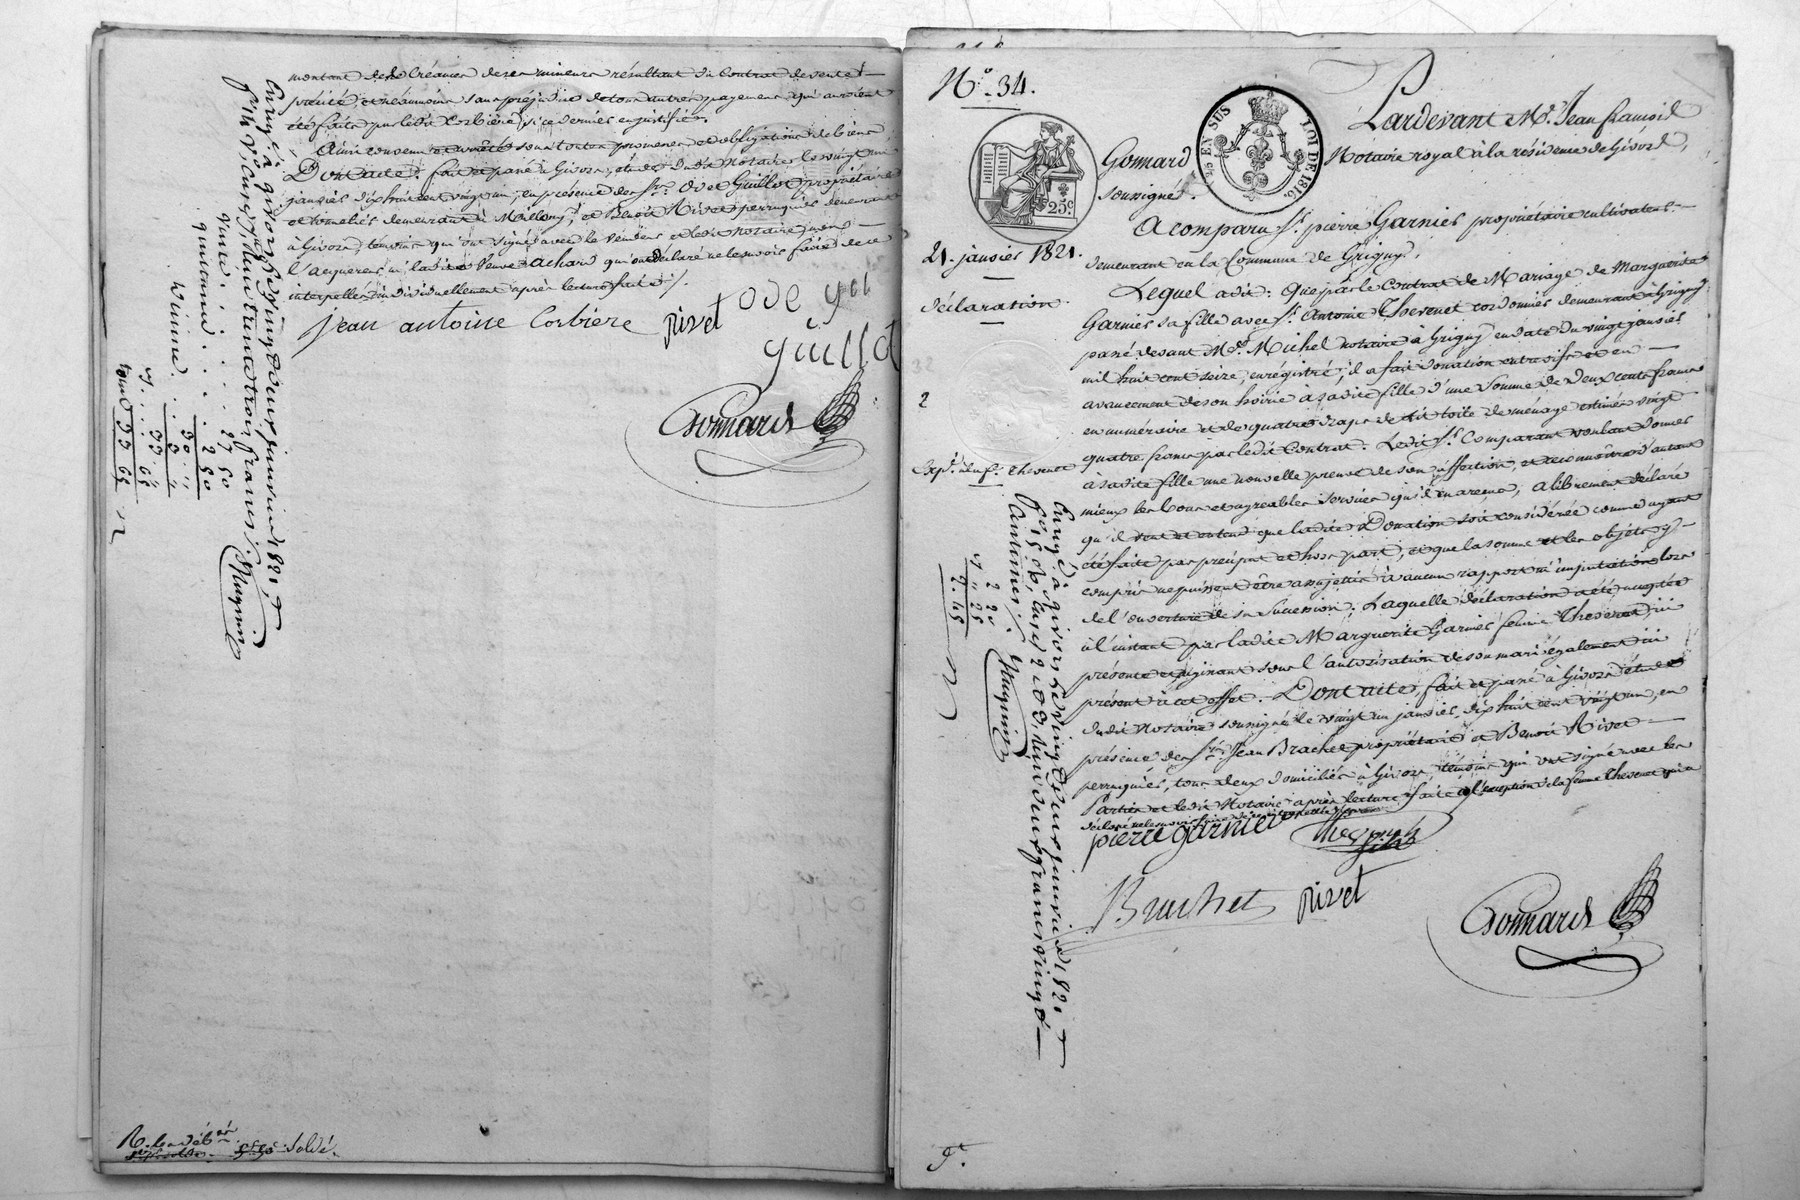 montant des Créances de ses mineurs résultant du Contrat de vente
précité, et néanmoins sans préjudice de tous autres payemens qui auroient
été faits par ledit Corbière, s'ils sont justifiés.
Ainsi convenu sous toutes promesses et obligations de biens
Dont acte: fait et passé à Givors, étude dudit Notaire le vingt un
janvier dix huit cent vingt un, en présence des Srs. Odet Guillot propriétaire
et domicilié demeurant à Millery, et Benoit Rivet perruquier demeurant
à Givors, témoins qui ont signé avec le vendeur et ledit Notaire, non
l'acquereur ni ladite Veuve Achard qui ont déclaré ne le savoir faire de ce
interpellés individuellement après lecture faite ./.
jean antoine Corbiere
Rivet
ode gui
guillo
Gonnard
Enrgé à givors le vingt deux janvier 1821, f°
Huguenin
27 50
2 50
30 "
3 "
33 "
" 65
33 65
Solde.
N°. 34.
Pardevant Me. Jean françois
Gonnard
Notaire royal à la résidence de Givors,
soussigné.
EN SUS
LOI DE 1816.
25 c
A comparu Sr. pierre Garnier propriétaire cultivateur
21. janvier 1821.
demeurant en la Commune de Grigny,
déclaration.
Lequel a dit: Que par le Contrat de Mariage de Marguerite
Garnier sa fille avec Sr. Antoine Thevenet cordonnier demeurant à Grigny
passé devant Me. Michel notaire à Grigny en date du vingt janvier
mil huit cent seize, enregistré, il a fait donation entre vifs et en
avancement de son hoirie à sadite fille d'une Somme de Deux cents francs
2
en numéraire et de quatre draps de lit toile de ménage estimés vingt
quatre francs par ledit Contrat. Ledit Sr. Comparant voulant donner
Expd. neuf. Thevenet
à sadite fille une nouvelle preuve de son affection, et reconnoitre d'autant
mieux les bons et agréables services qu'il en a reçus, a librement déclaré
qu'il veut et entend que ladite Donation soit considérée comme ayant
été faite par préciput et hors part, et que la somme et les objets y
compris ne puissent être assujettis à aucun rapport ni imputation lors
de l'ouverture de sa succession. Laquelle déclaration a été acceptée
à l'instant par ladite Marguerite Garnier femme Thevenet, ici
présente et agissant sous l'autorisation de son mari également ici
présent à cet effet. Dont acte, fait et passé à Givors étude
dudit Notaire soussigné le vingt un janvier, dix huit cent vingt un, en
présence des Srs. Jean Brachet propriétaire et Benoit Rivet
perruquier, tous deux domiciliés à Givors, témoins qui ont signé avec les
Parties et ledit Notaire après lecture faite à l'exception de la femme Thevenet qui a
pierre garnier
Brachet
Rivet
Gonnard
Enrgé à givors le vingt deux janvier 1821 f°
deux francs vingt
centimes.
Huguenin
2 20
" 25
2.45